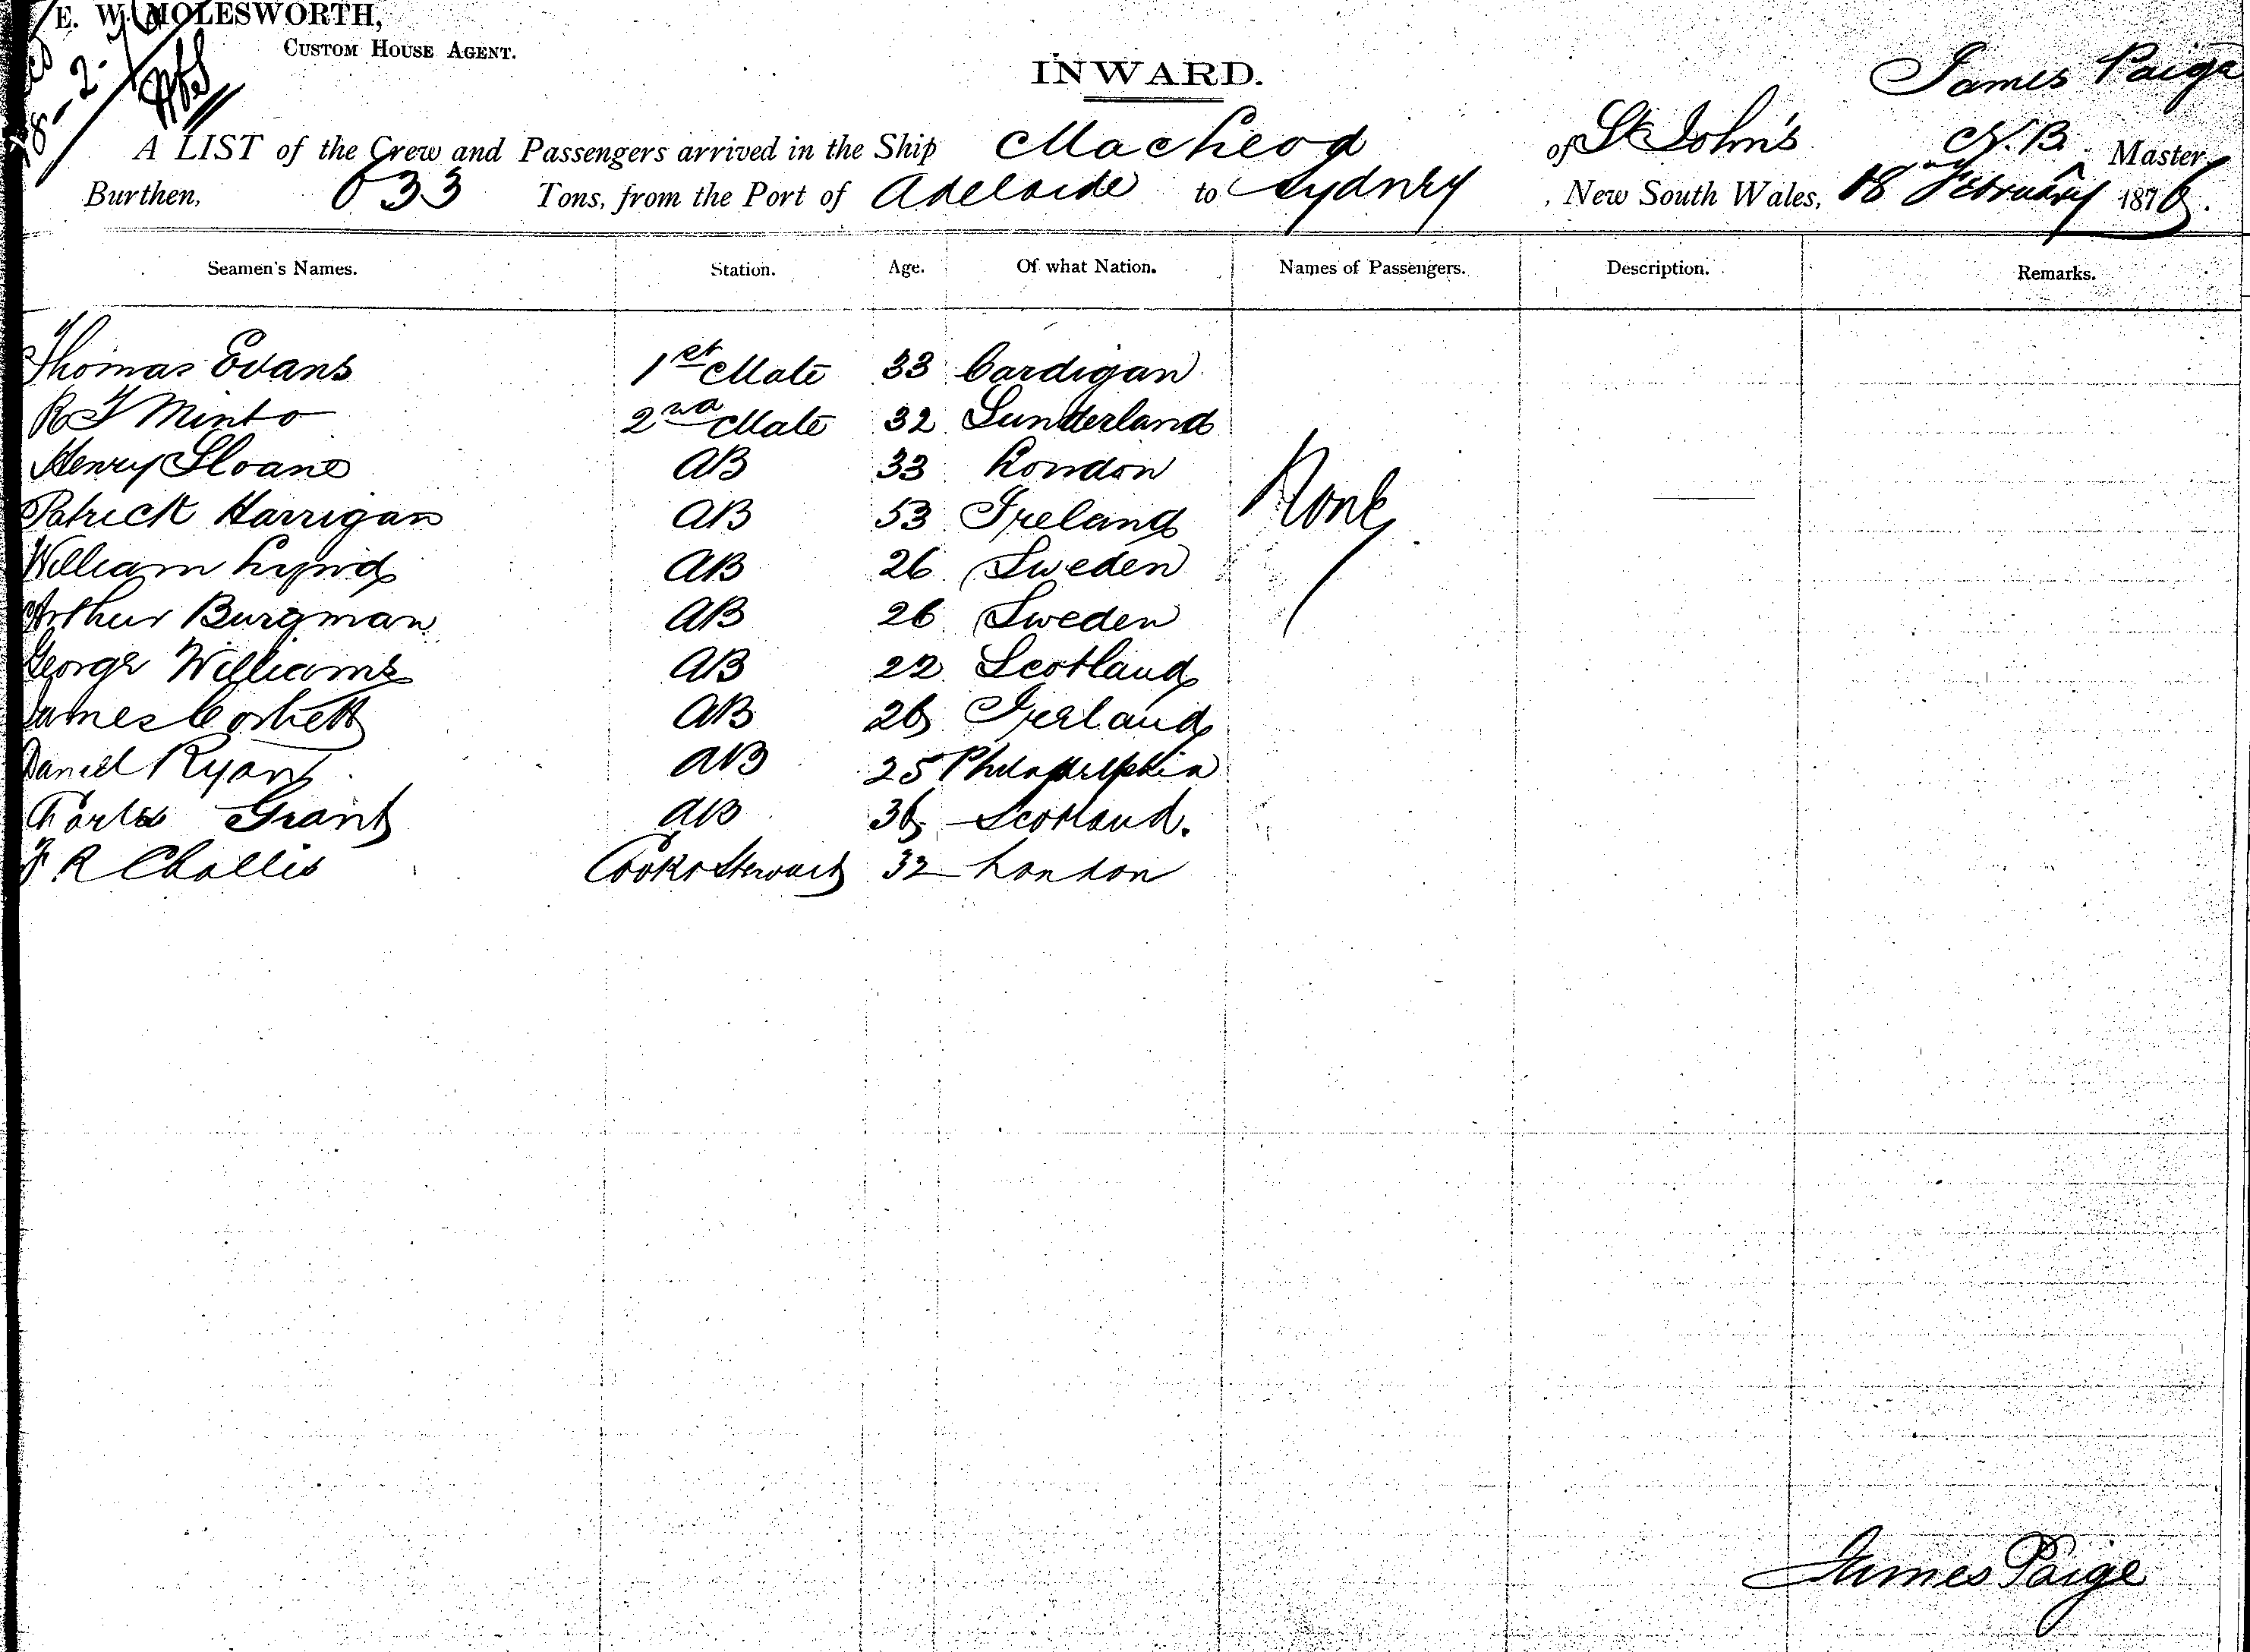 E. W. MOLESWORTH,
CUSTOM HOUSE AGENT.
18-2-76
INWARD.
James Paige
A LIST of the Crew and Passengers arrived in the Ship MacLeod of St John's N.B. Master,
Burthen, 633 Tons, from the Port of Adelaide to Sydney, New South Wales, 18 February 1876.
Seamen's Names. Station. Age. Of what Nation. Names of Passengers. Description. Remarks.
Thomas Evans 1st Mate 33 Cardigan
R Minto 2nd Mate 32 Sunderland
Henry Sloane AB 33 London
Patrick Harrigan AB 53 Ireland None
William Lynd AB 26 Sweden
Arthur Burgman AB 26 Sweden
George Williams AB 22 Scotland
James Corbett AB 26 Ireland
Daniel Ryan AB 25 Philadelphia
Charles Grant AB 36 Scotland.
F R Challis Cook & Steward 32 London
James Paige